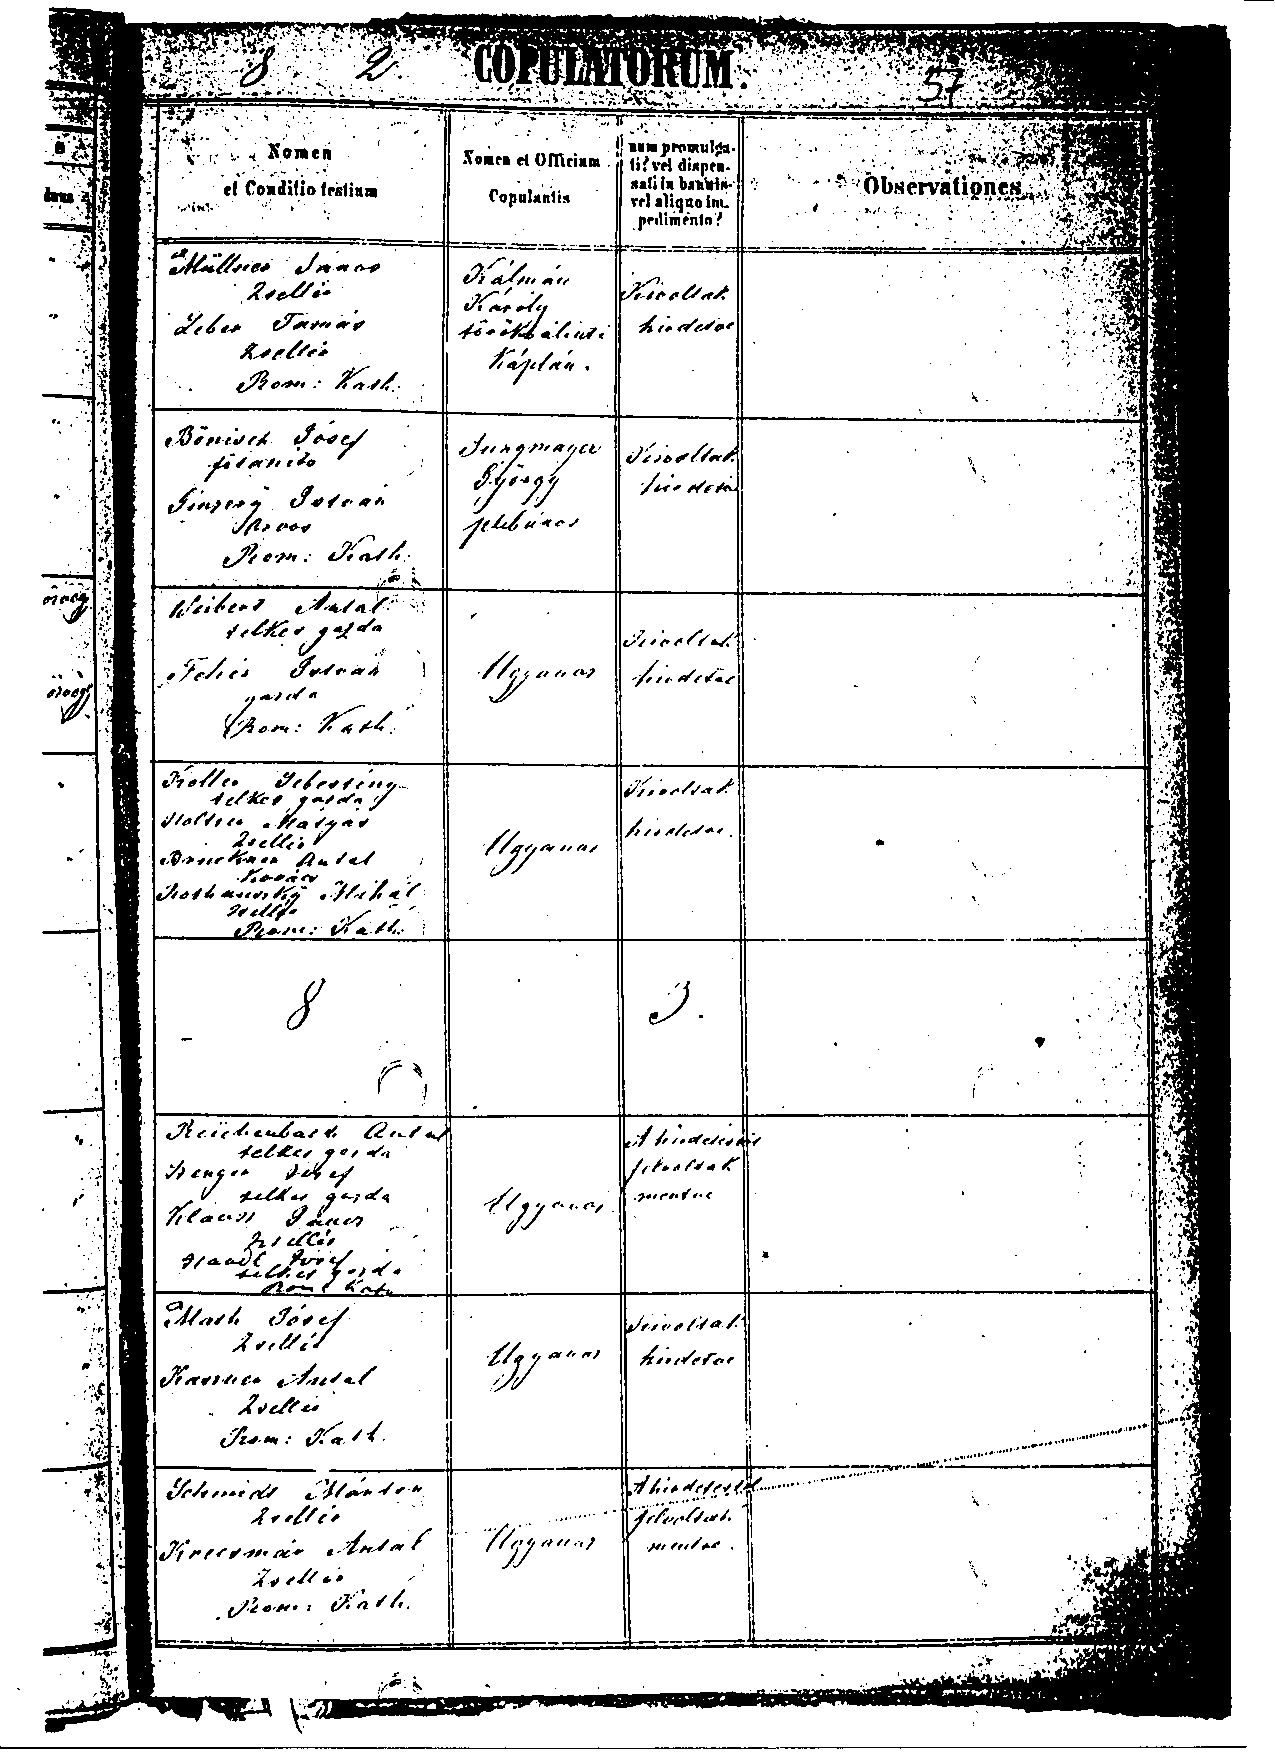 8. 2. COPULATORUM. 57
Nomen
et Conditio testium
Nomen et Officium
Copulantis
num promulga-
ti? vel dispen-
sati in bannis
vel aliquo im-
pedimento?
Observationes
Müllner János
Zsellér
Leber Tamás
Zsellér
Rom: Kath.
Kálmán
Károly
törökbálinti
Káplán.
Kivoltak
hirdetve
Bönisch József
István
Rom: Kath.
Jungmayer
György
plébános
Kivoltak
hirdetve
Antal
telkes gazda
Fehér István
gazda
Rom: Kath.
Ugyanaz
Kivoltak
hirdetve
Koller
telkes gazda
Mátyás
Zsellér
Antal
Kovács
Mihál
Zsellér
Rom: Kath.
Ugyanaz
Kivoltak
hirdetve.
8
3.
Reichenbach Antal
telkes gazda
Wenger József
telkes gazda
Klauss János
Zsellér
József
telkes gazda
Rom: Kath
Ugyanaz
A hirdetéstől
felvoltak
mentve
Math József
Zsellér
Antal
Zsellér
Rom: Kath.
Ugyanaz
Kivoltak
hirdetve
Schmidt Márton
Zsellér
Antal
Zsellér
Rom: Kath.
Ugyanaz
A hirdetéstől
felvoltak
mentve.